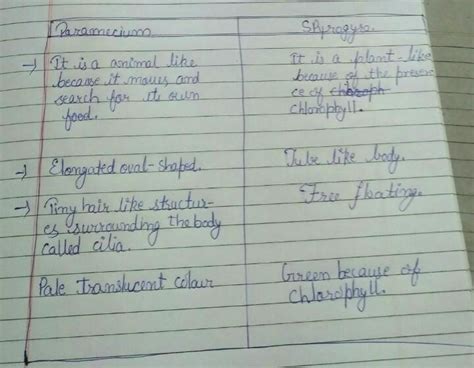 Paramecium
→ It is a animal like
because it moves and
search for its own
food.
→ Elongated oval-shaped.
→ Tiny hair like structur-
es surrounding the body
called cilia.
Pale translucent colour
Spyrogyra.
It is a plant-like
because of the presen
ce of
chlorophyll.
Tube like body.
Free floating.
Green because of
chlorophyll.